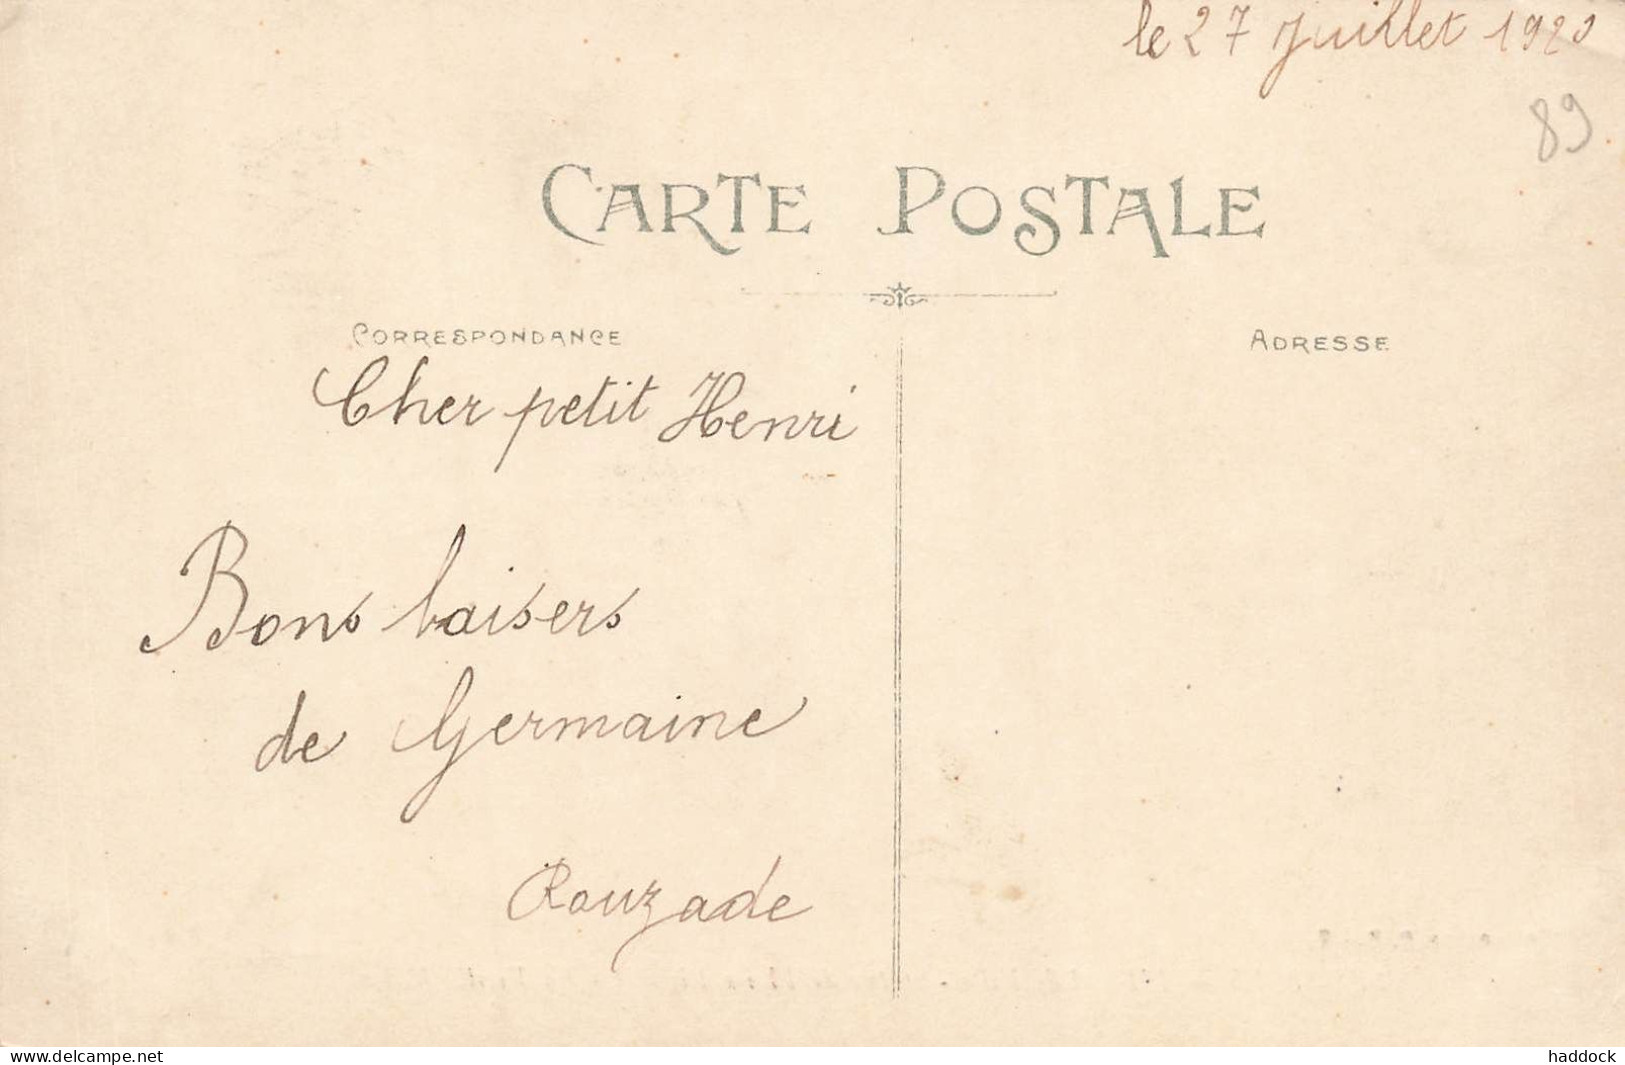 le 27 Juillet 1920
89
CARTE POSTALE
CORRESPONDANCE
ADRESSE
Cher petit Henri
Bons baisers
de Germaine
Rouzade
www.delcampe.net
haddock